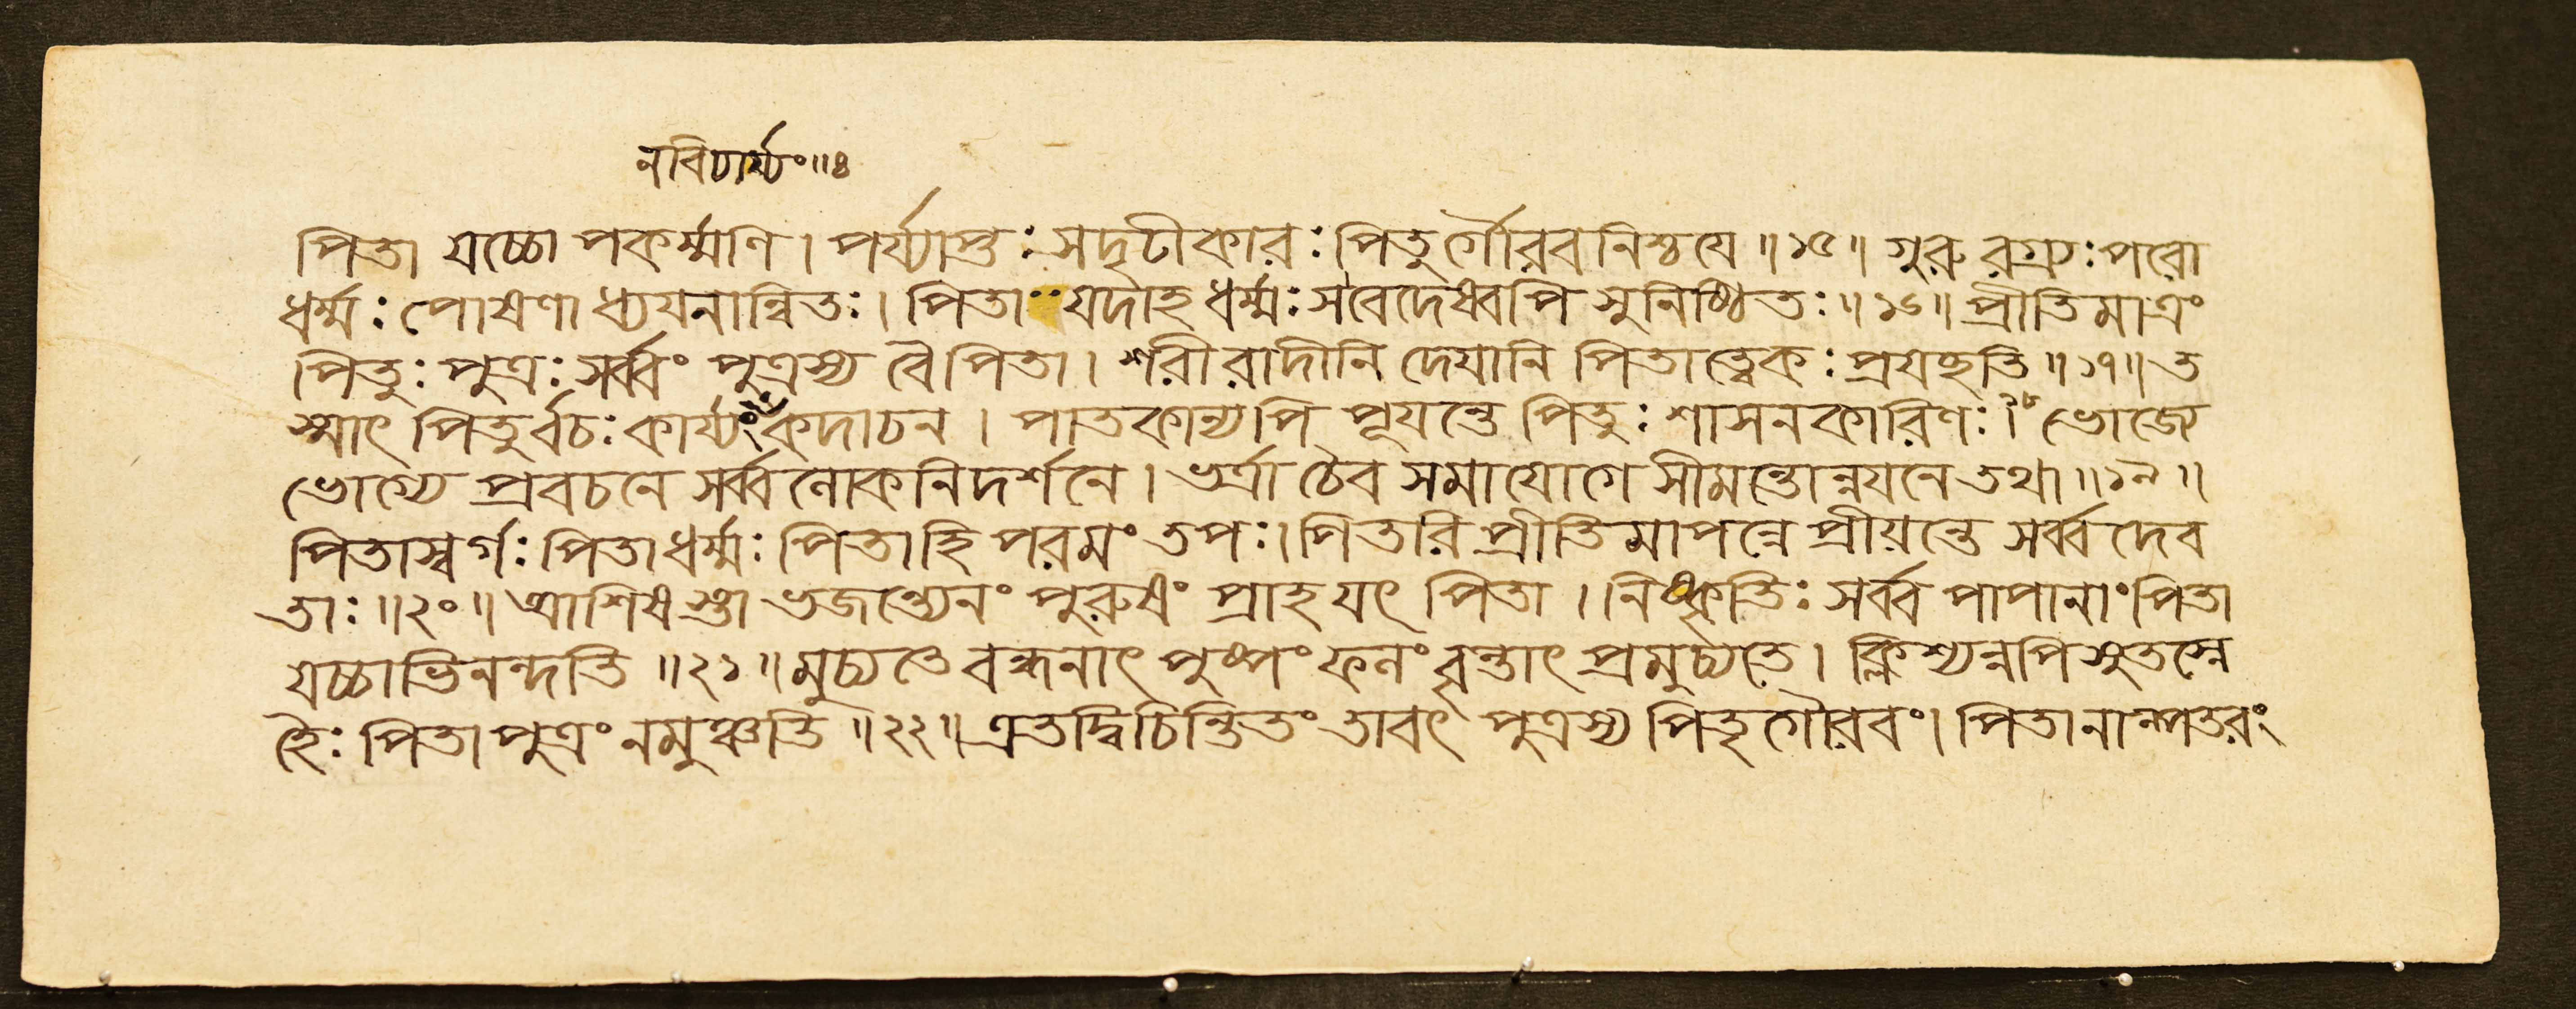 ন বিচার্য্যং ॥ ৪
পিতা যচ্চোপকর্ম্মণি । পর্য্যাপ্তঃ সদৃটীকারঃ পিতুর্গৌরবনিশ্চয়ে ॥ ১৫ ॥ গুরুরগ্র্যঃ পরো
ধর্ম্মঃ পোষণাধ্যয়নান্বিতঃ । পিতা যদাহ ধর্ম্মঃ স বেদেষ্বপি সুনিশ্চিতঃ ॥ ১৬ ॥ প্রীতিমাত্রং
পিতুঃ পুত্রঃ সর্ব্বং পুত্রস্য বৈ পিতা । শরীরাদীনি দেয়ানি পিতা ত্বেকঃ প্রযচ্ছতি ॥ ১৭ ॥ ত
স্মাৎ পিতুর্বচঃ কার্য্যং কদাচন । পাতকান্যপি পূয়ন্তে পিতুঃ শাসনকারিণঃ । ১৮ ভোজ্যে
ভোগ্যে প্রবচনে সর্ব্বলোকনিদর্শনে । ভর্ত্রা চৈব সমাযোগে সীমন্তোন্নয়নে তথা ॥ ১৯ ॥
পিতা স্বর্গঃ পিতা ধর্ম্মঃ পিতা হি পরমং তপঃ । পিতরি প্রীতিমাপন্নে প্রীয়ন্তে সর্ব্বদেব
তাঃ ॥ ২০ ॥ আশিষস্তা ভজন্ত্যেনং পুরুষং প্রাহ যৎ পিতা । নিষ্কৃতিঃ সর্ব্বপাপানাং পিতা
যচ্চাভিনন্দতি ॥ ২১ ॥ মুচ্যতে বন্ধনাৎ পুষ্পং ফলং বৃন্তাৎ প্রমুচ্যতে । ক্লিশ্যন্নপি সুতস্নে
হৈঃ পিতা পুত্রং ন মুঞ্চতি ॥ ২২ ॥ এতদ্বিচিন্তিতং তাবৎ পুত্রস্য পিতৃগৌরবং । পিতা নাল্পতরং